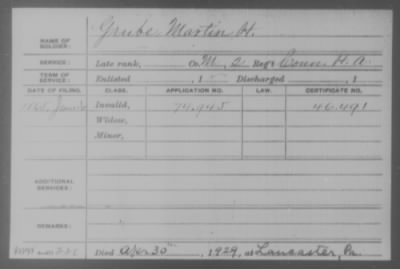 NAME OF SOLDIER: Grube Martin H.
SERVICE: Late rank, Co. M, 2 Reg't Conn H. A.
TERM OF SERVICE: Enlisted , 1 Discharged , 1
DATE OF FILING. CLASS. APPLICATION NO. LAW. CERTIFICATE NO.
1865 June Invalid, 74.945 46.491
Widow,
Minor,
ADDITIONAL SERVICES:
REMARKS:
Died Apr 30", 1929, at Lancaster, Pa.